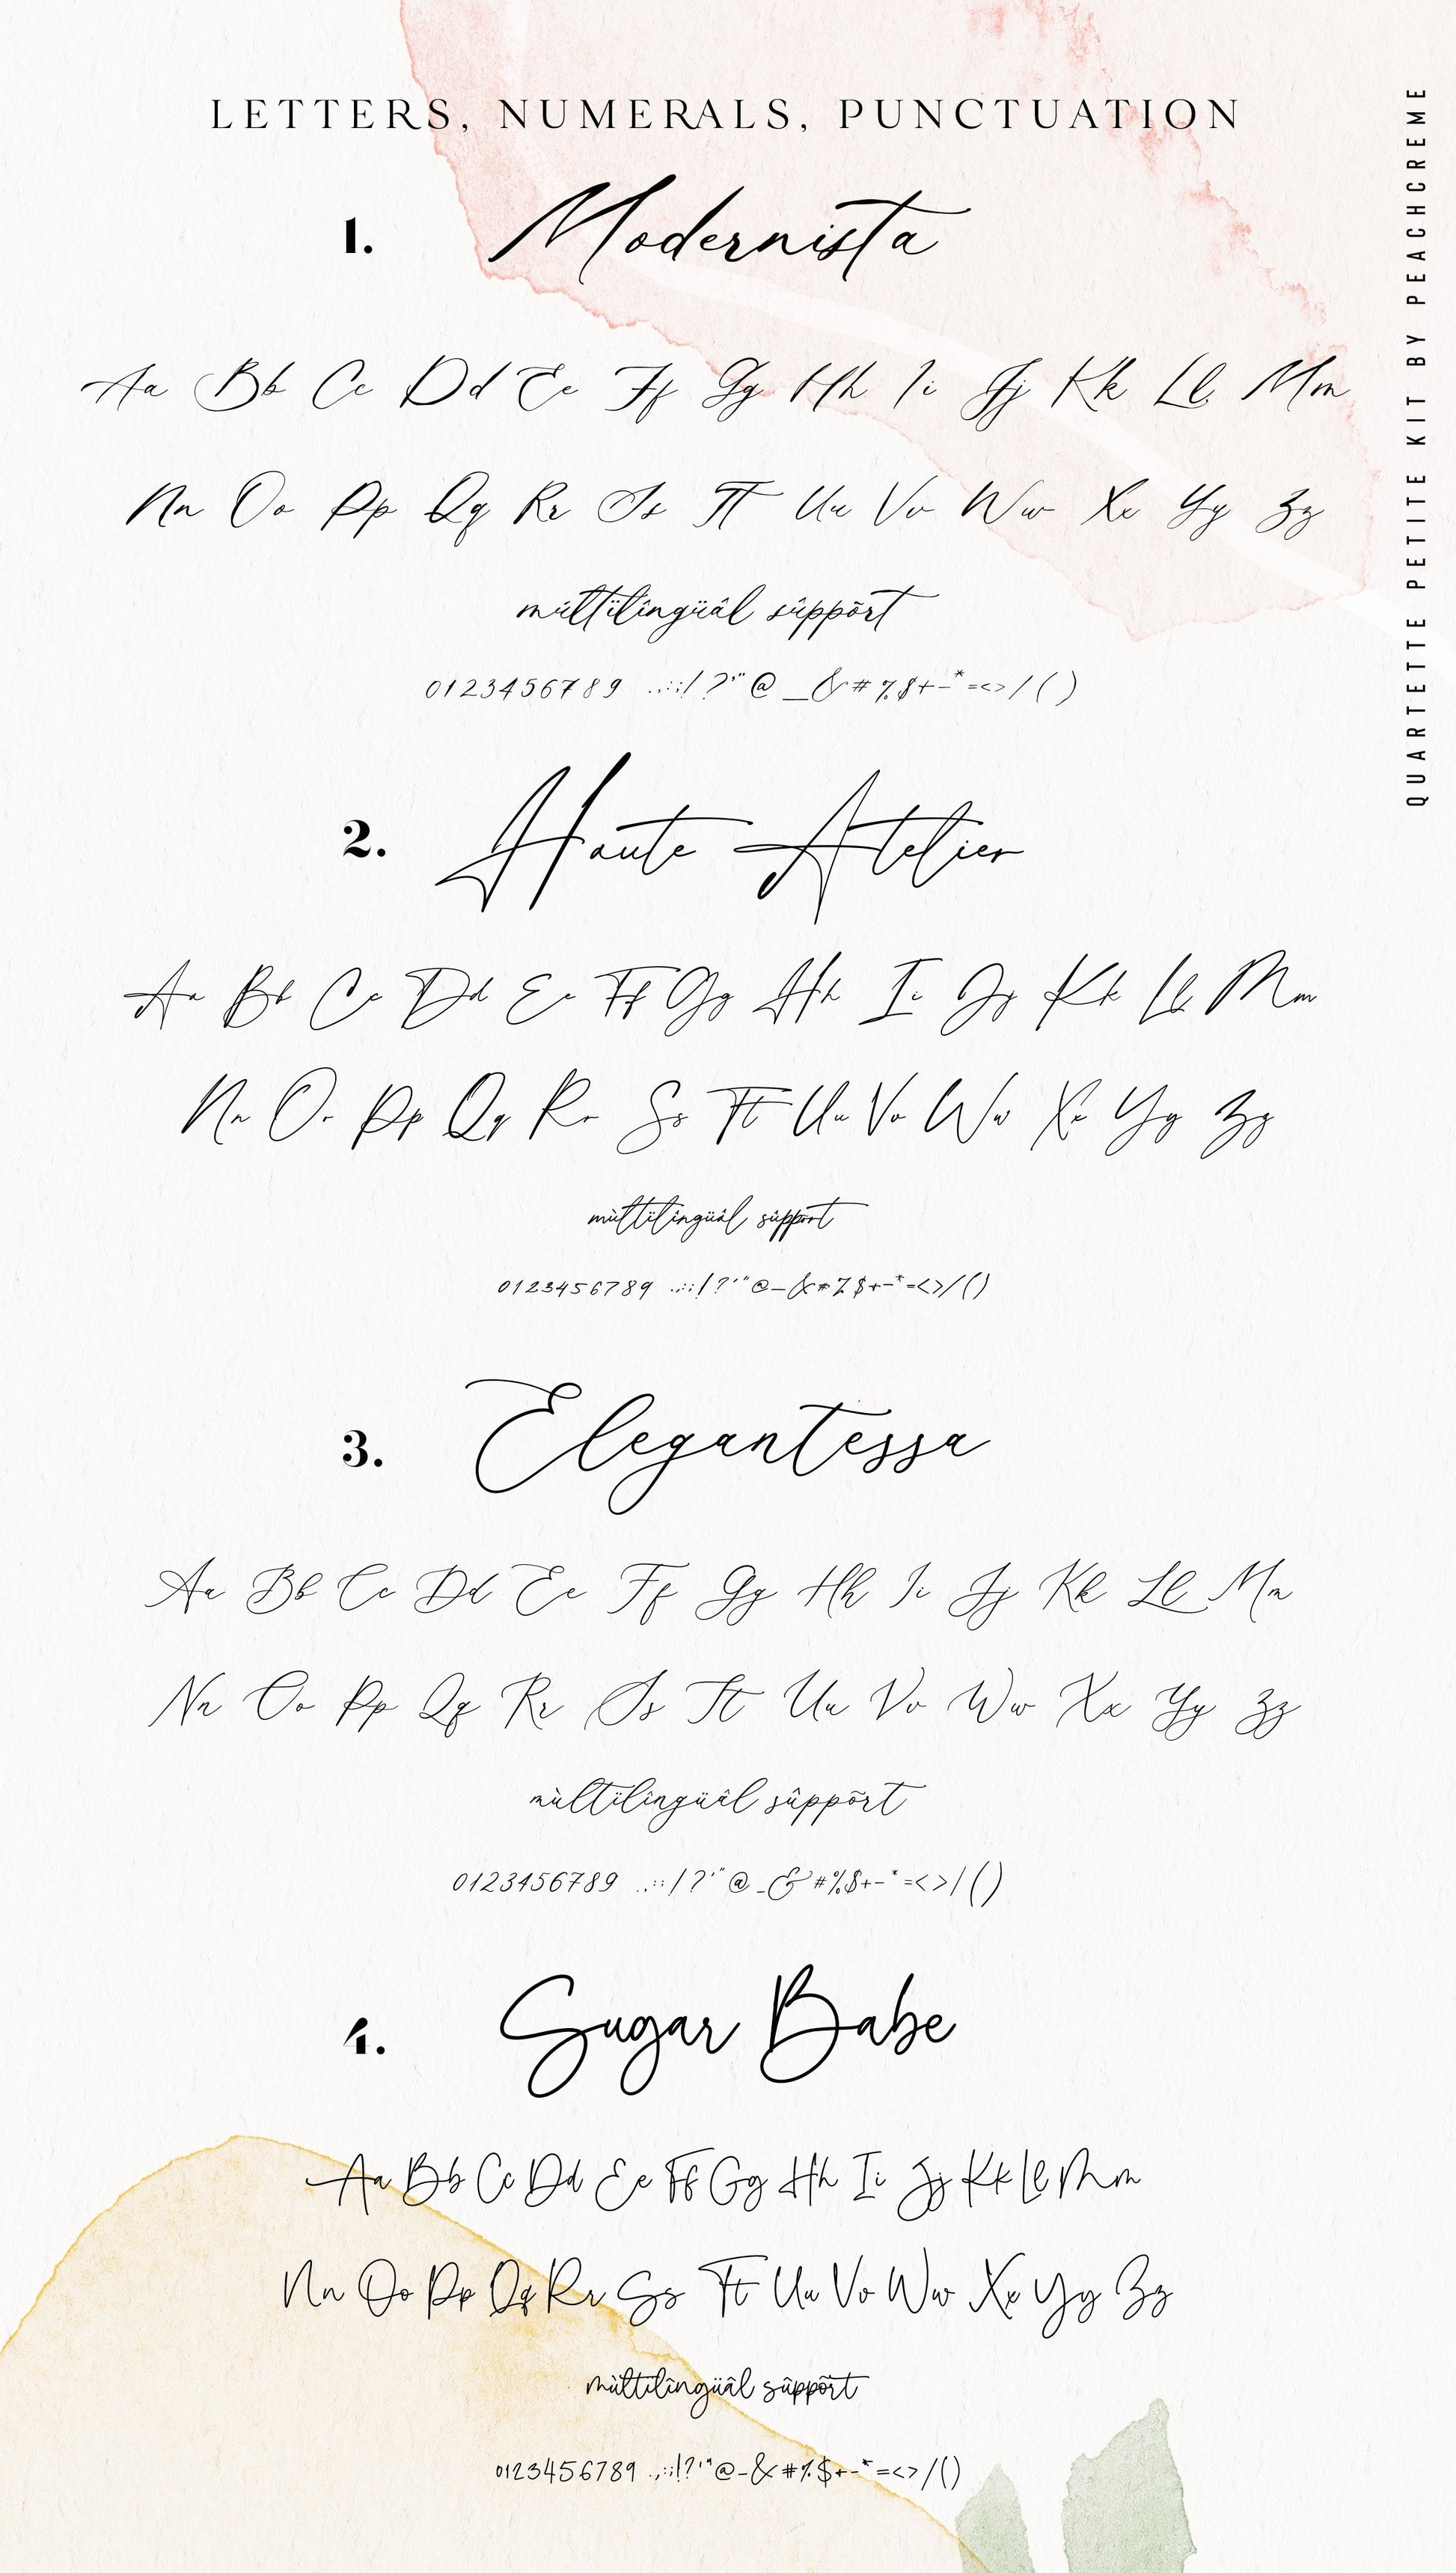 LETTERS, NUMERALS, PUNCTUATION
1. Modernista
Aa Bb Cc Dd Ee Ff Gg Hh Ii Jj Kk Ll Mm
Nn Oo Pp Qq Rr Ss Tt Uu Vv Ww Xx Yy Zz
mùltïlîngüâl sûppõrt
0123456789 .,:;!?'"@_&#%$+-*=<>/()
2. Haute Atelier
Aa Bb Cc Dd Ee Ff Gg Hh Ii Jj Kk Ll Mm
Nn Oo Pp Qq Rr Ss Tt Uu Vv Ww Xx Yy Zz
mùltïlîngüâl sûppõrt
0123456789 .,:;!?'"@_&#%$+-*=<>/()
3. Elegantessa
Aa Bb Cc Dd Ee Ff Gg Hh Ii Jj Kk Ll Mm
Nn Oo Pp Qq Rr Ss Tt Uu Vv Ww Xx Yy Zz
mùltïlîngüâl sûppõrt
0123456789 .,:;!?'"@_&#%$+-*=<>/()
4. Sugar Babe
Aa Bb Cc Dd Ee Ff Gg Hh Ii Jj Kk Ll Mm
Nn Oo Pp Qq Rr Ss Tt Uu Vv Ww Xx Yy Zz
mùltïlîngüâl sûppõrt
0123456789 .,:;!?'"@_&#%$+-*=<>/()
QUARTETTE PETITE KIT BY PEACHCREME